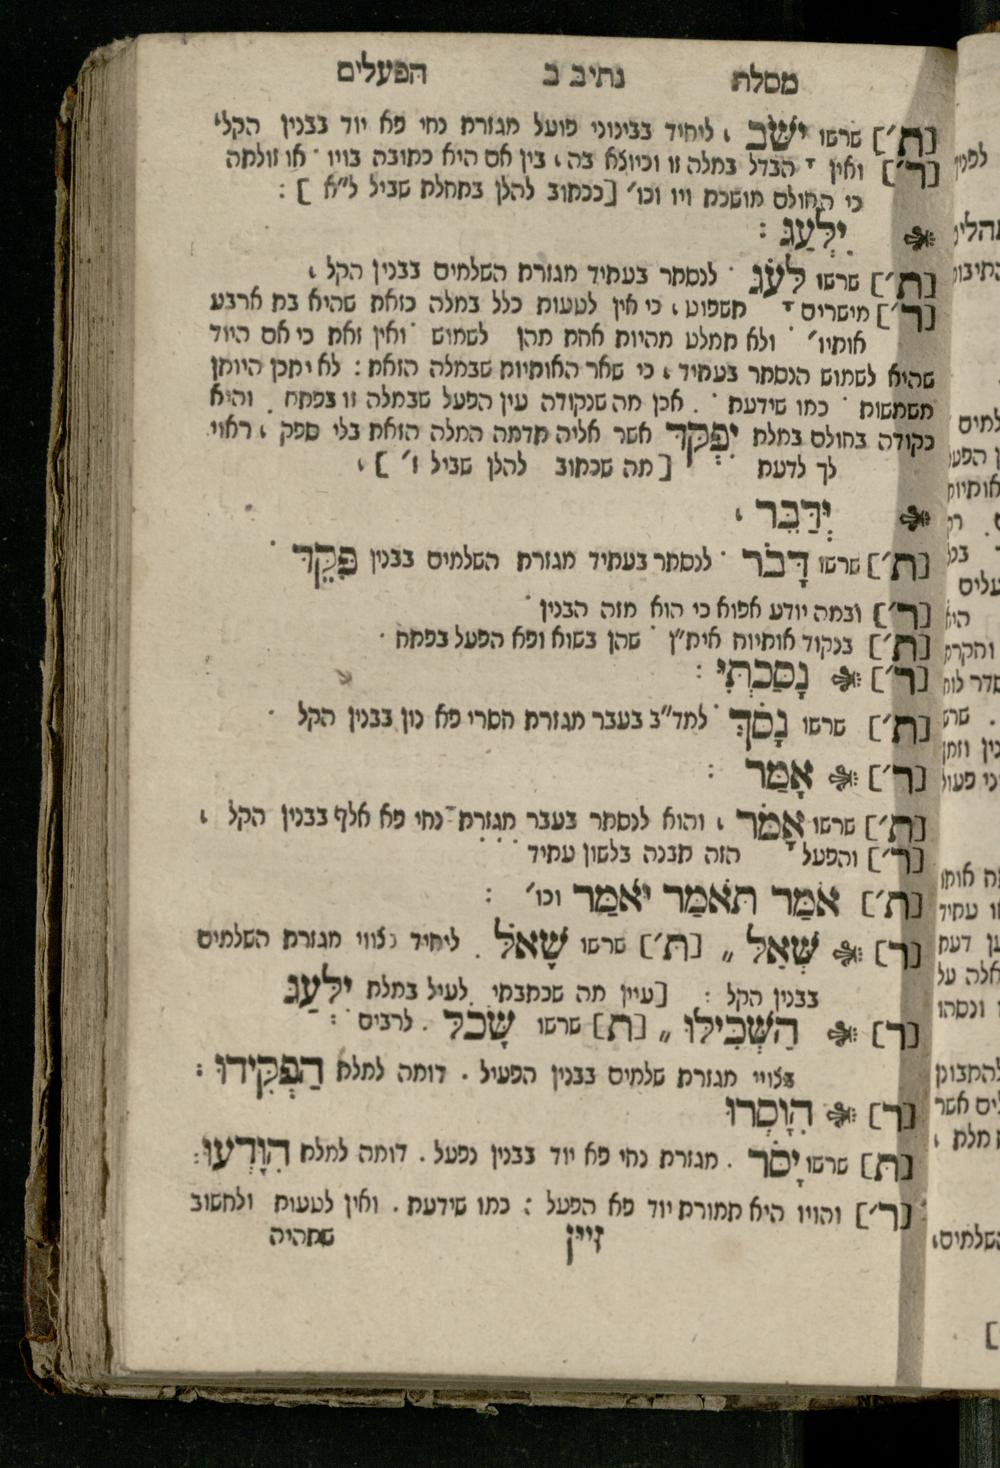 מסלת נתיב ב הפעלים
[ת׳] שרשו יָשֹׁב , ליחיד בבינוני פועל מגזרת נחי פא יוד בבנין הקל׳
[ר׳] ואין הבדל במלה זו וכיוצא בה , בין אם היא כתובה בויו ˙ או זולתה
כי החולם מושכת ויו וכו׳ [ככתוב להלן בתחלת שביל ל״א ] :
יִלְעַג :
[ת׳] שרשו לָעֹג ˙ לנסתר בעתיד מגזרת השלמים בבנין הקל ,
[ר׳] מישרים תשפוט , כי אין לטעות כלל במלה כזאת שהיא בת ארבע
אותיו׳ ˙ ולא תמלט מהיות אחת מהן לשמוש ˙ ואין זאת כי אם היוד
שהיא לשמוש הנסתר בעתיד , כי שאר האותיות שבמלה הזאת : לא יתכן היותן
משמשות ˙ כמו שידעת ˙ . אכן מה שנקודה עין הפעל שבמלה זו בפתח . והיא
נקודה בחולם במלת יִפְקֹד אשר אליה תדמה המלה הזאת בלי ספק , ראוי
לך לדעת [מה שכתוב להלן שביל ז׳ ] ,
יְדַבֵּר ,
[ת׳] שרשו דָּבֹר ˙ לנסתר בעתיד מגזרת השלמים בבנין פִּקֵּד ˙
[ר׳] ובמה יודע אפוא כי הוא מזה הבנין ˙
[ת׳] בנקוד אותיות אית״ן ˙ שהן בשוא ופא הפעל בפתח ˙
[ר׳] נָסַכְתִּי :
[ת׳] שרשו נָסֹךְ ˙ למד״ב בעבר מגזרת חסרי פא נון בבנין הקל ˙
[ר׳] אָמַר :
[ת׳] שרשו אָמֹר , והוא לנסתר בעבר מגזרת נחי פא אלף בבנין הקל ,
[ר׳] והפעל הזה תבנה בלשון עתיד
[ת׳] אֹמַר תֹּאמַר יֹאמַר וכו׳ :
[ר] שְׁאַל ,, [ת׳] שרשו שָׁאֹל . ליחיד בצווי מגזרת השלמים
בבנין הקל : [עיין מה שכתבתי לעיל במלת יִלְעַג
[ר] הַשְׂכִּילוּ ,, [ת] שרשו שָׂכֹל . לרבים :
בצווי מגזרת שלמים בבנין הפעיל . דומה למלת הַפְקִידוּ :
[ר] הִוָּסְרוּ
[ת] שרשו יָסֹר . מגזרת נחי פא יוד בבנין נפעל . דומה למלת הִוָּדְעוּ :
[ר׳] והויו היא תמורת יוד פא הפעל : כמו שידעת . ואין לטעות ולחשוב
זיין שתהיה